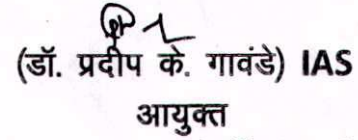 (डॉ. प्रदीप के. गावंडे) IAS
आयुक्त